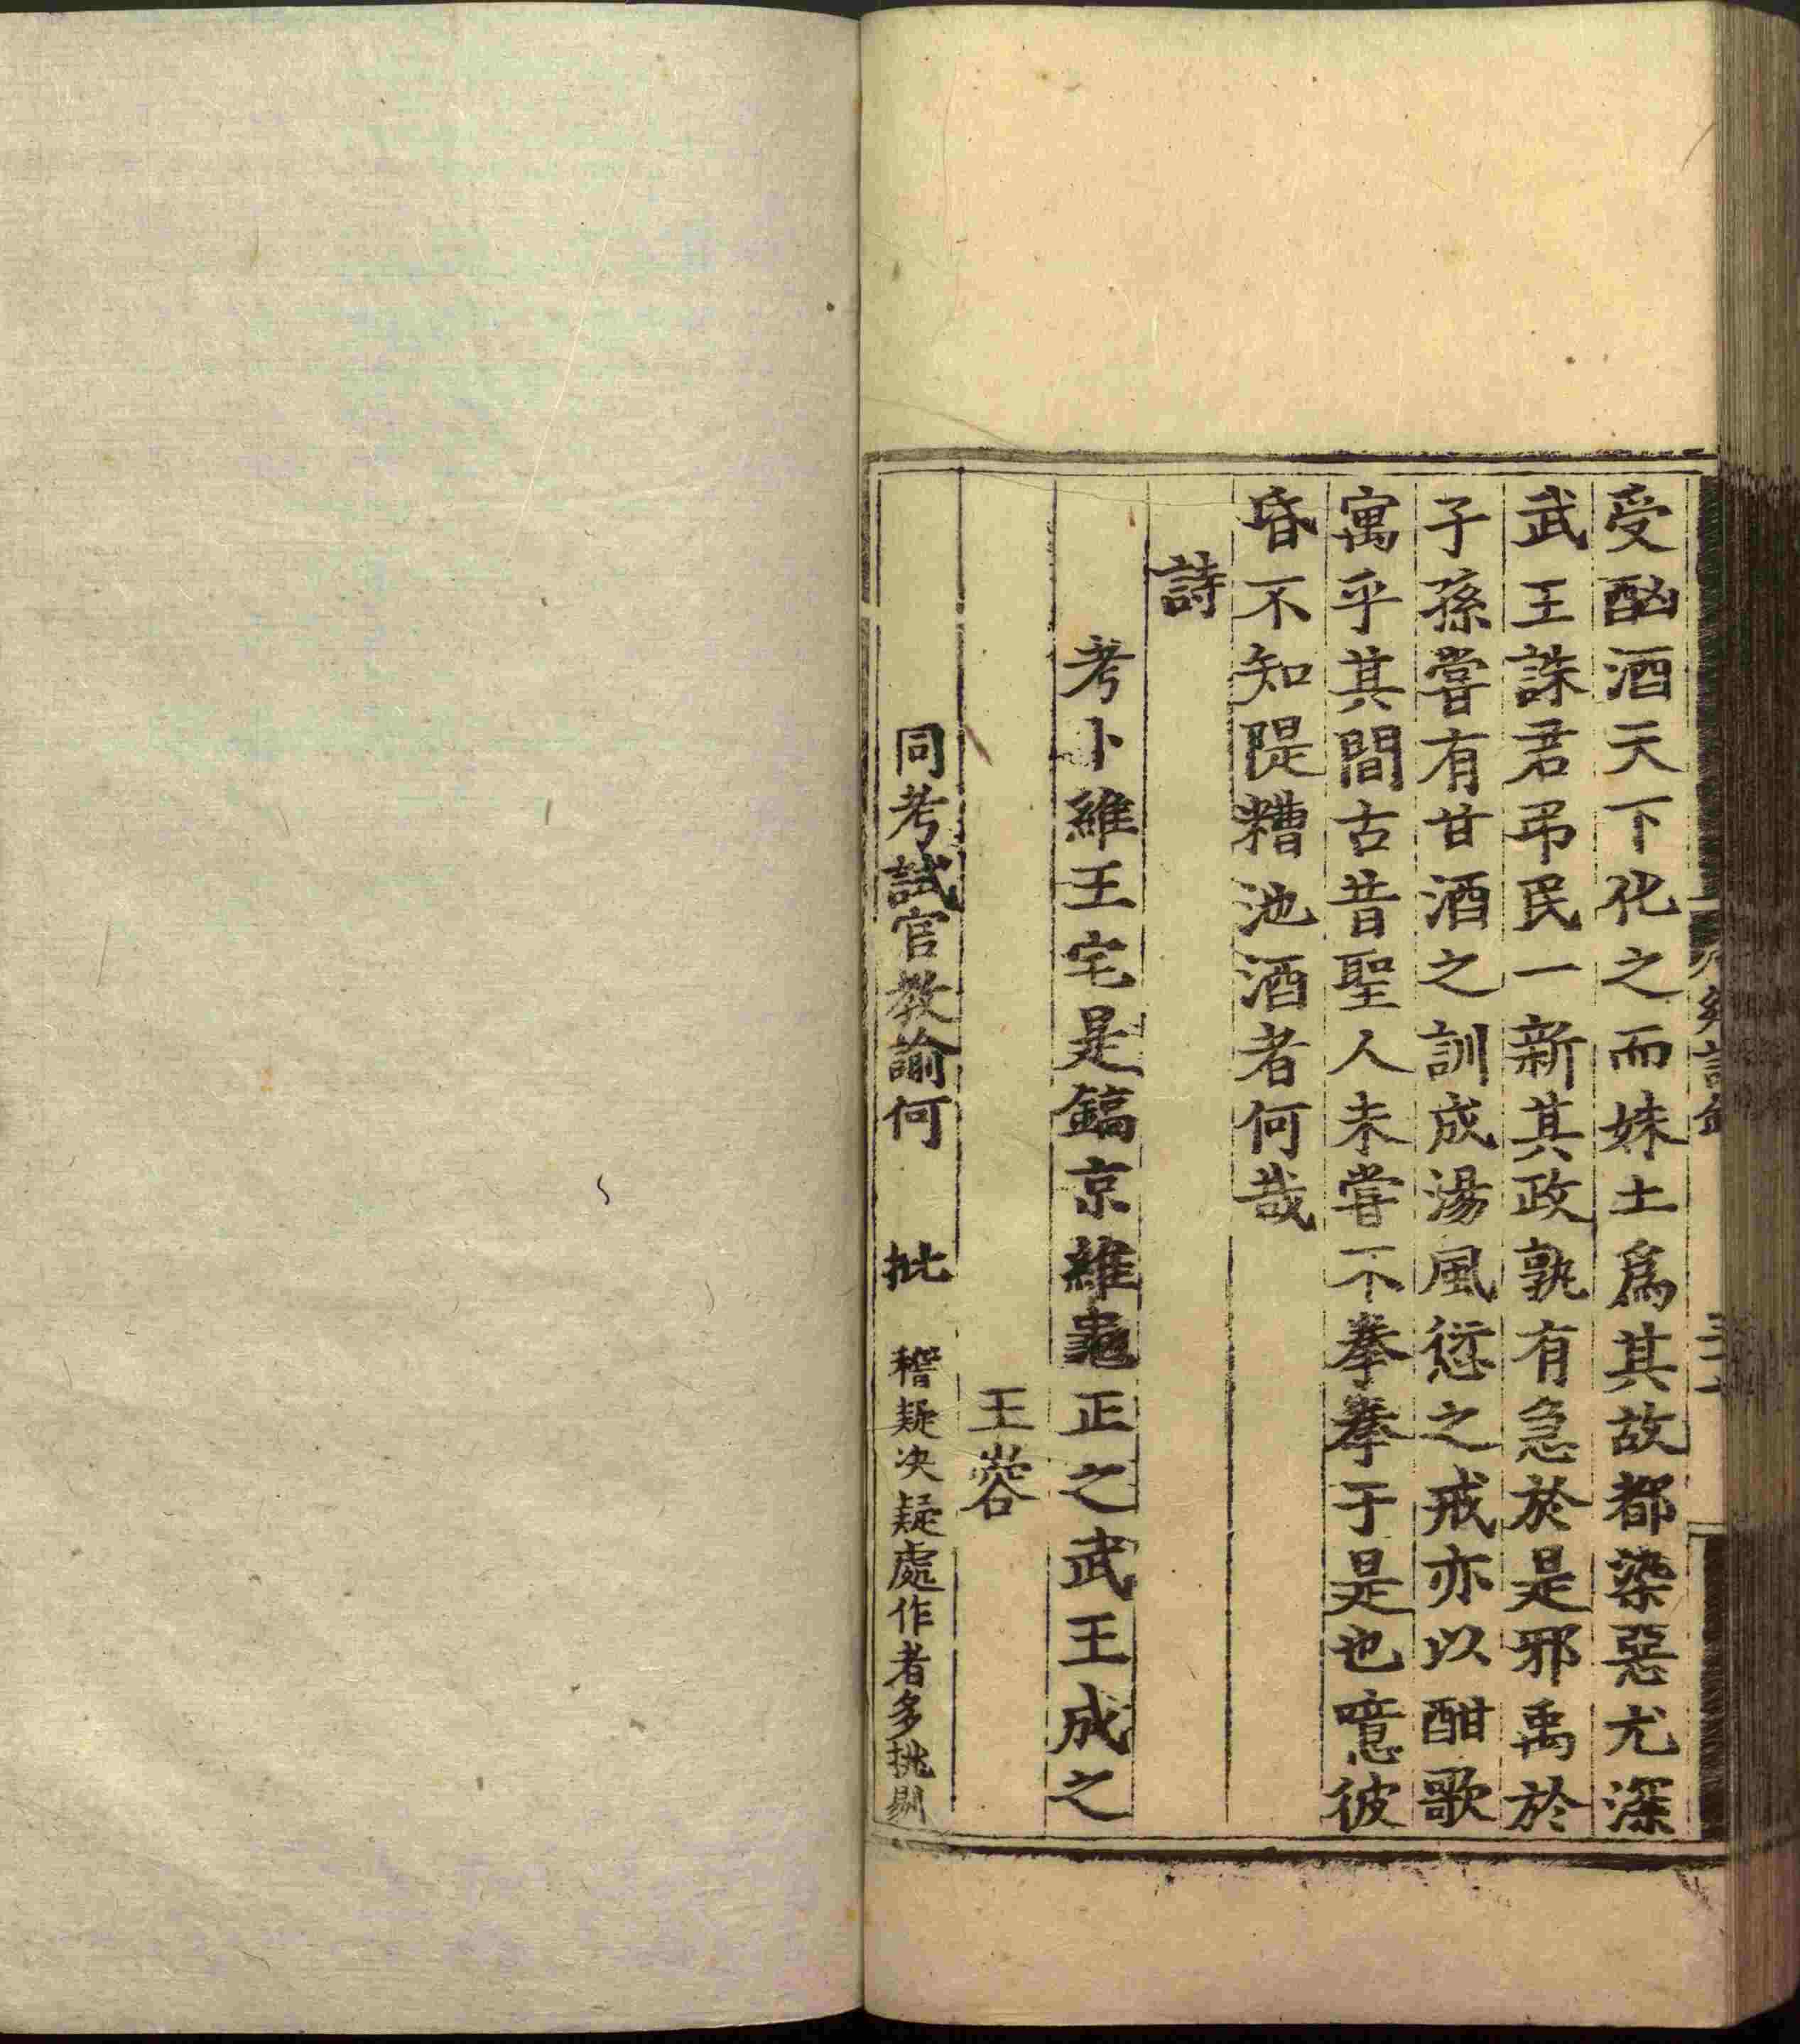 受酗酒天下化之而妹土爲其故都染惡尤深
武王誅君弔民一新其政孰有急於是邪禹於
子孫嘗有甘酒之訓成湯風愆之戒亦以酣歌
寓乎其間古昔聖人未嘗不拳拳于是也噫彼
昏不知隄糟池酒者何哉
詩
考卜維王宅是鎬京維龜正之武王成之
王蓉
同考試官教諭何 批 稽疑决疑處作者多挑剔